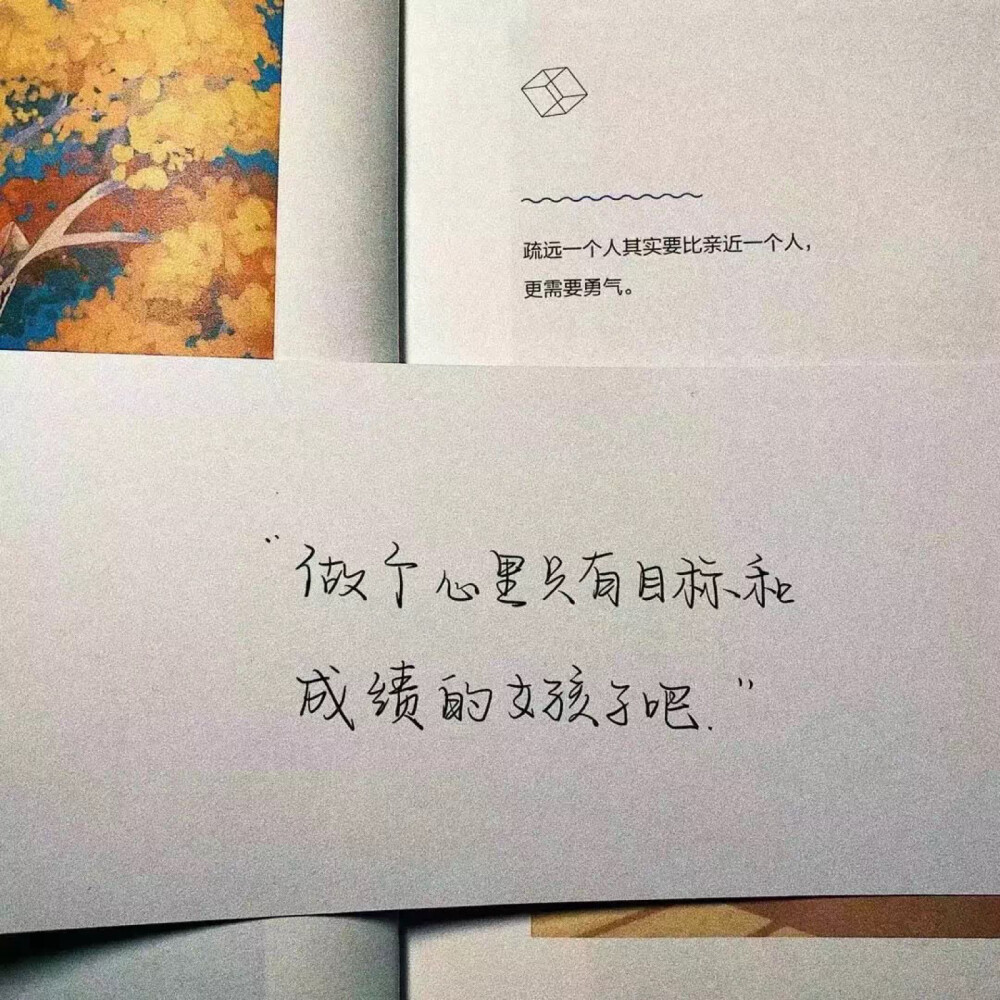 疏远一个人其实要比亲近一个人，
更需要勇气。
“做个心里只有目标和
成绩的女孩子吧.”